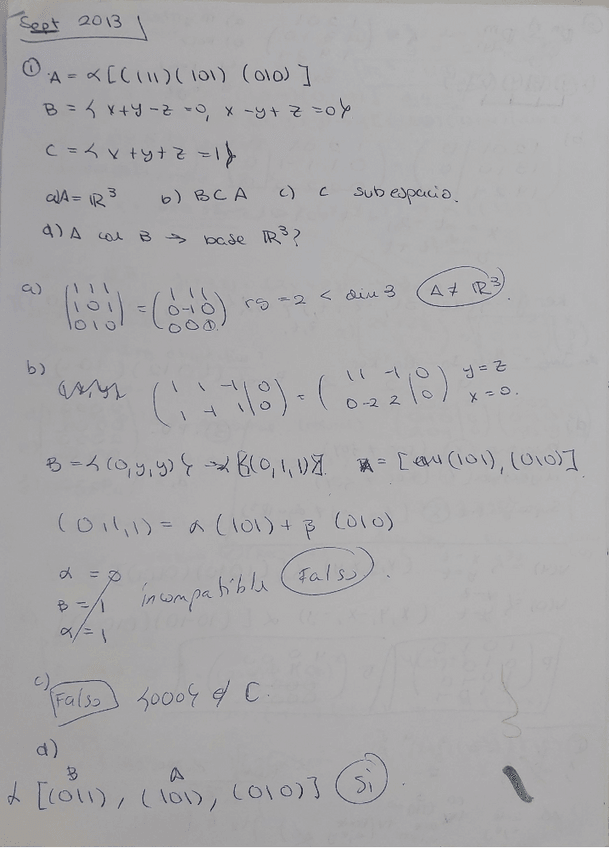 Sept 2013
① A = ℒ[(111)(101) (010)]
B = { x+y-z=0, x-y+z=0}
C = { x+y+z=1}
a) A= ℝ³ b) B ⊂ A c) C subespacio.
d) A con B → base ℝ³?
a) (1 1 1 / 1 0 1 / 0 1 0) = (1 1 1 / 0 -1 0 / 0 0 0) rg = 2 < dim 3 A ≠ ℝ³.
b) (1 1 -1 | 0 / 1 -1 1 | 0) = (1 1 -1 | 0 / 0 -2 2 | 0) y = z x = 0.
B = {(0,y,y)} → ℒ[(0,1,1)] A = [(101), (010)]
(0,1,1) = α (101) + β (010)
α = 0
β = 1 incompatible Falso.
α = 1
c) Falso {000} ∉ C.
d)
B A
ℒ [(011), (101), (010)] Si.